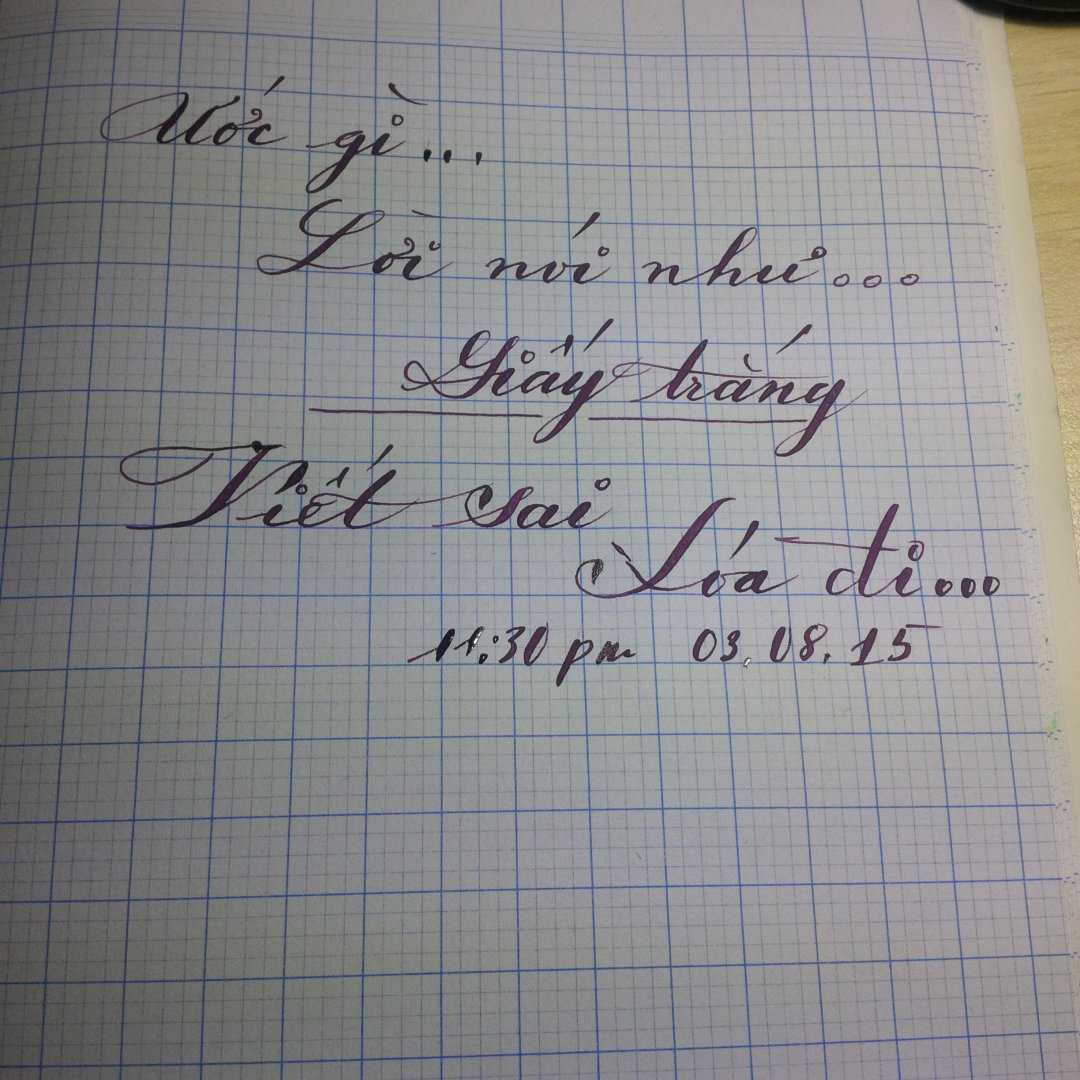 Ước gì...
Lời nói như...
Giấy trắng
Viết sai
Xóa đi...
11:30 pm 03.08.15